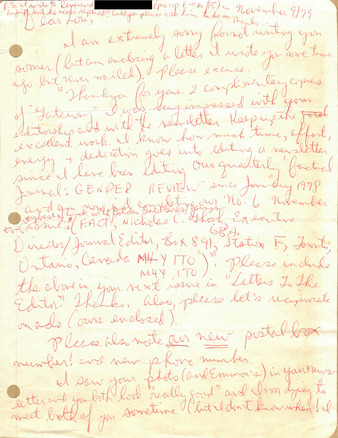 November 9/79
Dear Lou,
I am extremely sorry for not writing you
sooner (but am enclosing a letter I wrote you some time
ago but never mailed). Please excuse.
Thank you for your 2 complimentary copies
of "Gateway". I was very impressed with your
editorship and with the newsletter. Keep up the
excellent work. I know how much time, effort,
energy + dedication goes into editing a newsletter
since I have been editing our quarterly "factual
Journal: GENDER REVIEW" since January 1978
and am now completing our No. 6 November
(FACT), Nicholas C. Ghosh, Executive
Director/Journal Editor, Box 891, Station F, Toronto,
Ontario, Canada M4Y 1T0
M4Y 1T0)". Please include
the above in your next issue in "Letters To The
Editor". Thanks. Also, please let's reciprocate
on ads (ours enclosed).
Please also note our new postal box
number! and new phone number.
I saw your photo (and Emma's) in your News-
letter and you both look "really good" and I'm dying to
meet both of you sometime (but I don't know when)! I